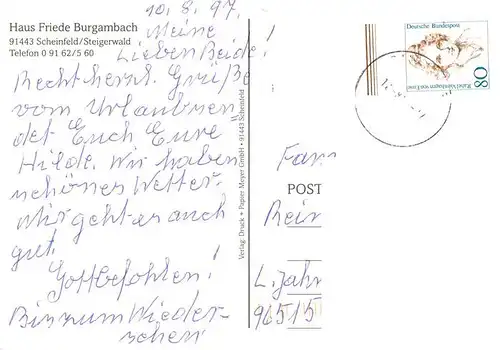 Haus Friede Burgambach
91443 Scheinfeld/Steigerwald
Telefon 0 91 62/5 60
10. 8. 97.
Meine
Lieben Beide!
Recht herzl. Grüße
vom Urlaub sen
det Euch Eure
Hilde. Wir haben
schönes Wetter.
Mir geht es auch
gut.
Gott befohlen!
Bis zum Wieder-
sehen
Verlag: Druck + Papier Meyer GmbH • 91443 Scheinfeld
Deutsche Bundespost
80
Rahel Varnhagen von Ense
Fam
POST
Rein
L. Jahn
96515